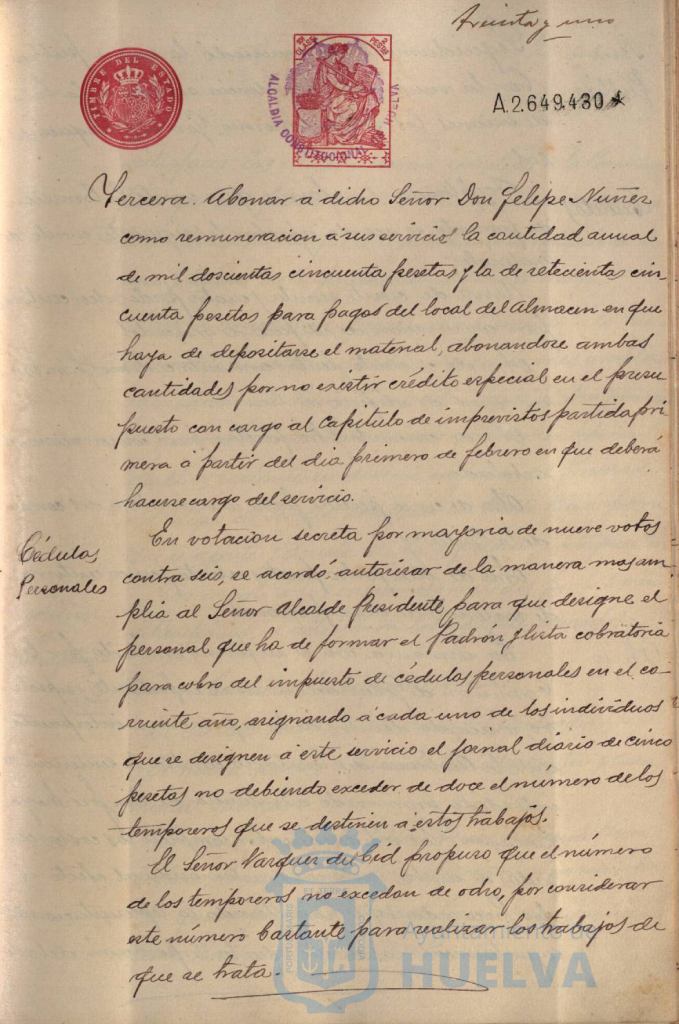 treinta y uno
TIMBRE DEL ESTADO
CLASE
PESETAS
ALCALDIA CONSTITUCIONAL
HUELVA
A.2.649.430
Tercera. Abonar á dicho Señor Don Felipe Nuñez
como remuneracion á sus servicios la cantidad anual
de mil doscientas cincuenta pesetas y la de setecientas cin-
cuenta pesetas para pagos del local del Almacen en que
haya de depositarse el material, abonandose ambas
cantidades por no existir crédito especial en el presu-
puesto con cargo al Capitulo de imprevistos partida pri-
mera á partir del dia primero de febrero en que deberá
hacerse cargo del servicio.
Cédulas
Personales
En votacion secreta por mayoria de nueve votos
contra seis, se acordó, autorizar de la manera mas am-
plia al Señor Alcalde Presidente para que designe el
personal que ha de formar el Padrón y lista cobratoria
para cobro del impuesto de cédulas personales en el co-
rriente año, asignando á cada uno de los individuos
que se designen á este servicio el jornal diario de cinco
pesetas no debiendo exceder de doce el número de los
temporeros que se destinen á estos trabajos.
El Señor Vazquez du Cid propuso que el número
de los temporeros no excedan de ocho, por considerar
este número bastante para realizar los trabajos de
que se trata.
Ayuntamiento de
HUELVA